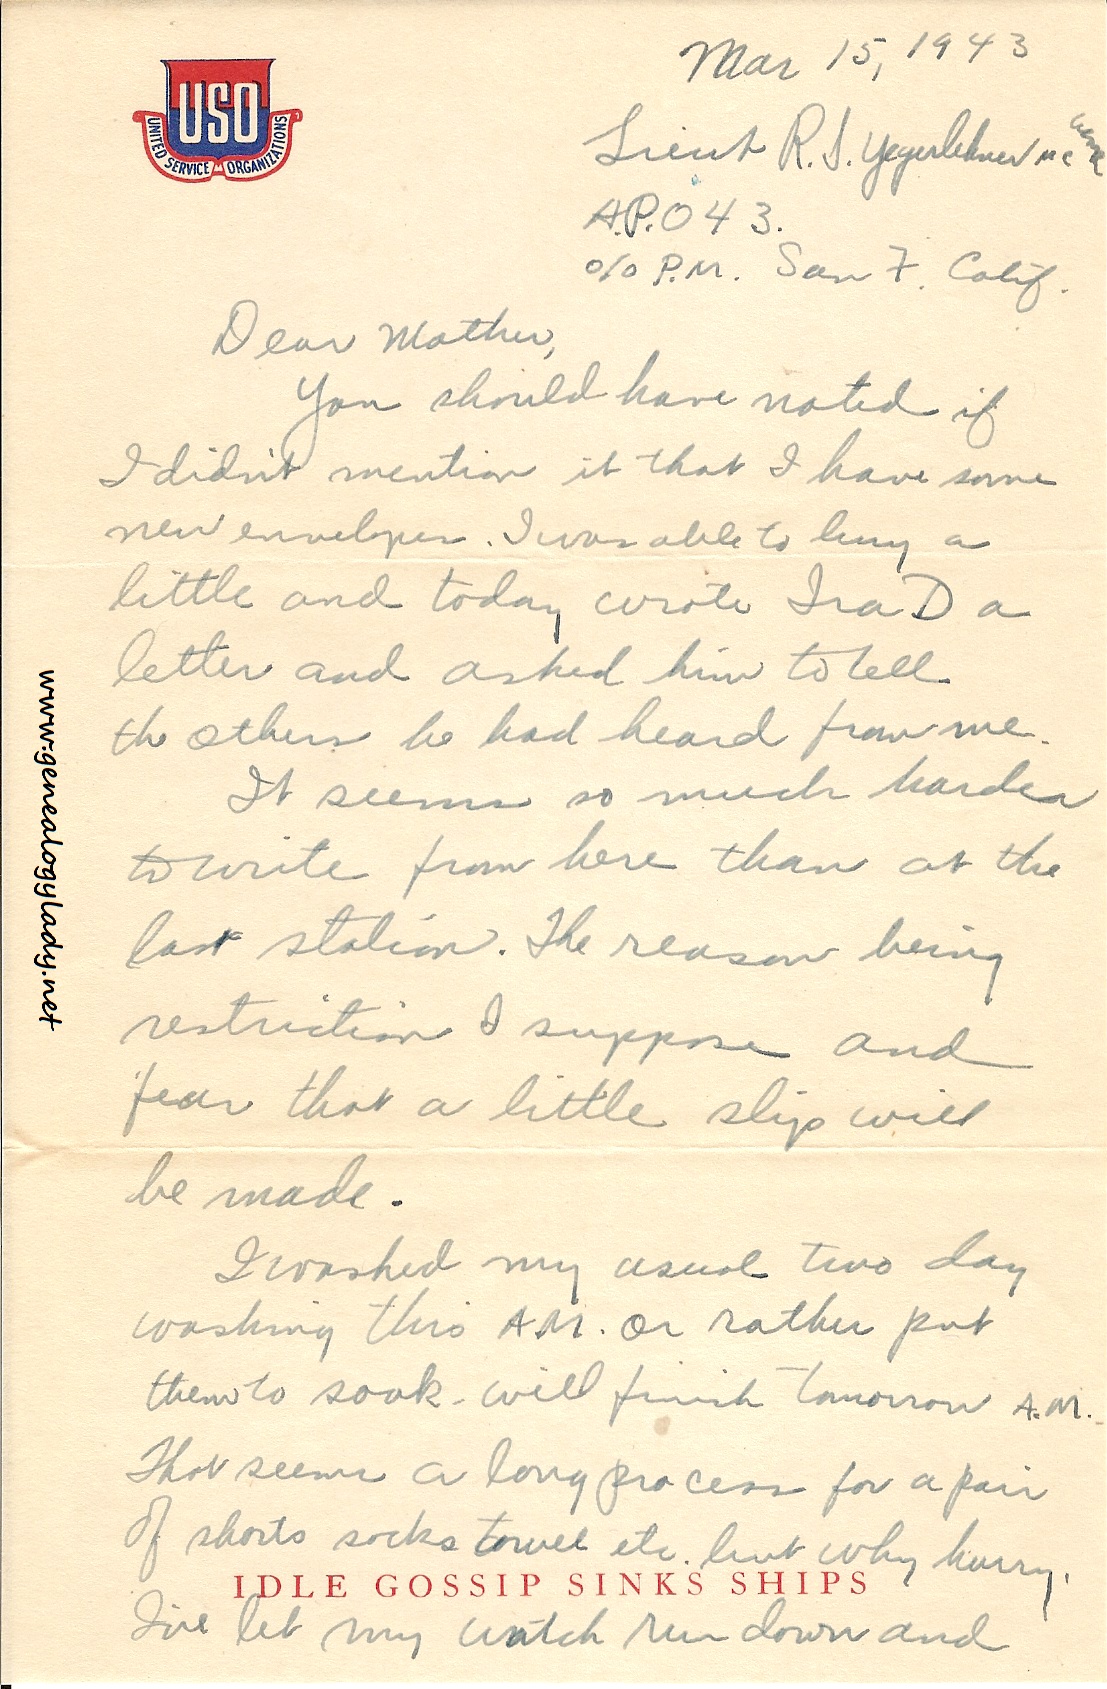 Mar 15, 1943
USO
UNITED SERVICE ORGANIZATIONS
Lieut R. S. Yegerlehner MC
A.P.O 43.
c/o P.M. San F. Calif.
Dear Mother,
You should have noted if
I didn't mention it that I have some
new envelopes. I was able to buy a
little and today wrote Ira D a
letter and asked him to tell
the others he had heard from me.
It seems so much harder
to write from here than at the
last station. The reason being
restriction I suppose and
fear that a little slip will
be made.
I washed my usual two day
washing this A.M. or rather put
them to soak - will finish tomorrow A.M.
That seems a long process for a pair
of shorts socks towel etc. but why hurry.
IDLE GOSSIP SINKS SHIPS
I've let my watch run down and
www.genealogylady.net